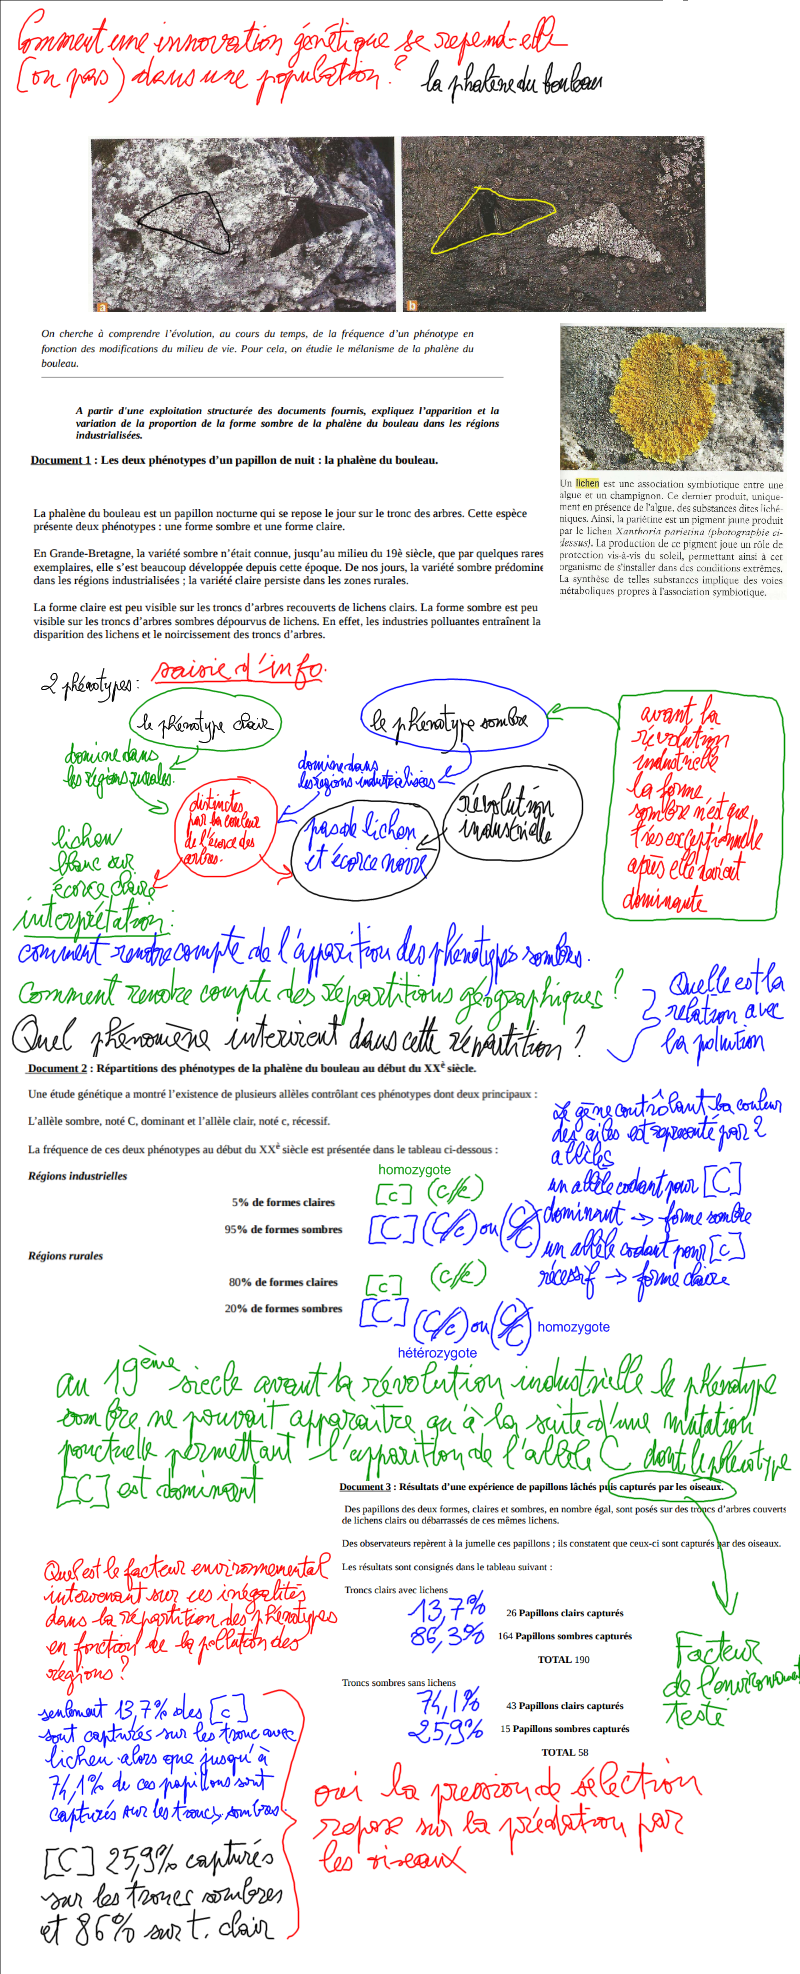 Comment une innovation génétique se repend-elle
(ou pas) dans une population ?
la phalène du bouleau
a
b
On cherche à comprendre l'évolution, au cours du temps, de la fréquence d'un phénotype en
fonction des modifications du milieu de vie. Pour cela, on étudie le mélanisme de la phalène du
bouleau.
A partir d'une exploitation structurée des documents fournis, expliquez l'apparition et la
variation de la proportion de la forme sombre de la phalène du bouleau dans les régions
industrialisées.
Document 1 : Les deux phénotypes d'un papillon de nuit : la phalène du bouleau.
Un lichen est une association symbiotique entre une
algue et un champignon. Ce dernier produit, unique-
ment en présence de l'algue, des substances dites liché-
niques. Ainsi, la pariétine est un pigment jaune produit
par le lichen Xanthoria parietina (photographie ci-
dessus). La production de ce pigment joue un rôle de
protection vis-à-vis du soleil, permettant ainsi à cet
organisme de s'installer dans des conditions extrêmes.
La synthèse de telles substances implique des voies
métaboliques propres à l'association symbiotique.
La phalène du bouleau est un papillon nocturne qui se repose le jour sur le tronc des arbres. Cette espèce
présente deux phénotypes : une forme sombre et une forme claire.
En Grande-Bretagne, la variété sombre n'était connue, jusqu'au milieu du 19è siècle, que par quelques rares
exemplaires, elle s'est beaucoup développée depuis cette époque. De nos jours, la variété sombre prédomine
dans les régions industrialisées ; la variété claire persiste dans les zones rurales.
La forme claire est peu visible sur les troncs d'arbres recouverts de lichens clairs. La forme sombre est peu
visible sur les troncs d'arbres sombres dépourvus de lichens. En effet, les industries polluantes entraînent la
disparition des lichens et le noircissement des troncs d'arbres.
saisie d'info.
2 phénotypes :
le phénotype clair
le phénotype sombre
domine dans
les régions rurales.
domine dans
les régions industrialisées
distinctes
par la couleur
de l'écorce des
arbres.
pas de lichen
et écorce noire
révolution
industrielle
avant la
révolution
industrielle
la forme
sombre n'est que
très exceptionnelle
après elle devient
dominante
lichen
blanc sur
écorce claire
interprétation :
comment rendre compte de l'apparition des phénotypes sombres.
Comment rendre compte des répartitions géographiques ?
Quel phénomène intervient dans cette répartition ?
Quelle est la
relation avec
la pollution
Document 2 : Répartitions des phénotypes de la phalène du bouleau au début du XXè siècle.
Une étude génétique a montré l'existence de plusieurs allèles contrôlant ces phénotypes dont deux principaux :
L'allèle sombre, noté C, dominant et l'allèle clair, noté c, récessif.
La fréquence de ces deux phénotypes au début du XXè siècle est présentée dans le tableau ci-dessous :
Régions industrielles
homozygote
5% de formes claires [c] (c//c)
95% de formes sombres [C] (C//c) ou (C//C)
Régions rurales
80% de formes claires [c] (c//c)
20% de formes sombres [C] (C//c) ou (C//C)
homozygote
hétérozygote
Le gène contrôlant la couleur
des ailes est représenté par 2
allèles
un allèle codant pour [C]
dominant → forme sombre
un allèle codant pour [c]
récessif → forme claire
au 19ème siècle avant la révolution industrielle le phénotype
sombre ne pouvait apparaitre qu'à la suite d'une mutation
ponctuelle permettant l'apparition de l'allèle C dont le phénotype
[C] est dominant
Document 3 : Résultats d'une expérience de papillons lâchés puis capturés par les oiseaux.
Des papillons des deux formes, claires et sombres, en nombre égal, sont posés sur des troncs d'arbres couverts
de lichens clairs ou débarrassés de ces mêmes lichens.
Des observateurs repèrent à la jumelle ces papillons ; ils constatent que ceux-ci sont capturés par des oiseaux.
Les résultats sont consignés dans le tableau suivant :
Troncs clairs avec lichens
13,7% 26 Papillons clairs capturés
86,3% 164 Papillons sombres capturés
TOTAL 190
Troncs sombres sans lichens
74,1% 43 Papillons clairs capturés
25,9% 15 Papillons sombres capturés
TOTAL 58
Facteur
de l'environnement
testé
Quel est le facteur environnemental
intervenant sur ces inégalités
dans la répartition des phénotypes
en fonction de la pollution des
régions ?
seulement 13,7% des [c]
sont capturés sur les tronc avec
lichen alors que jusqu'à
74,1% de ces papillons sont
capturés sur les troncs sombres.
[C] 25,9% capturés
sur les troncs sombres
et 86% sur t. clair
oui la pression de sélection
repose sur la prédation par
les oiseaux